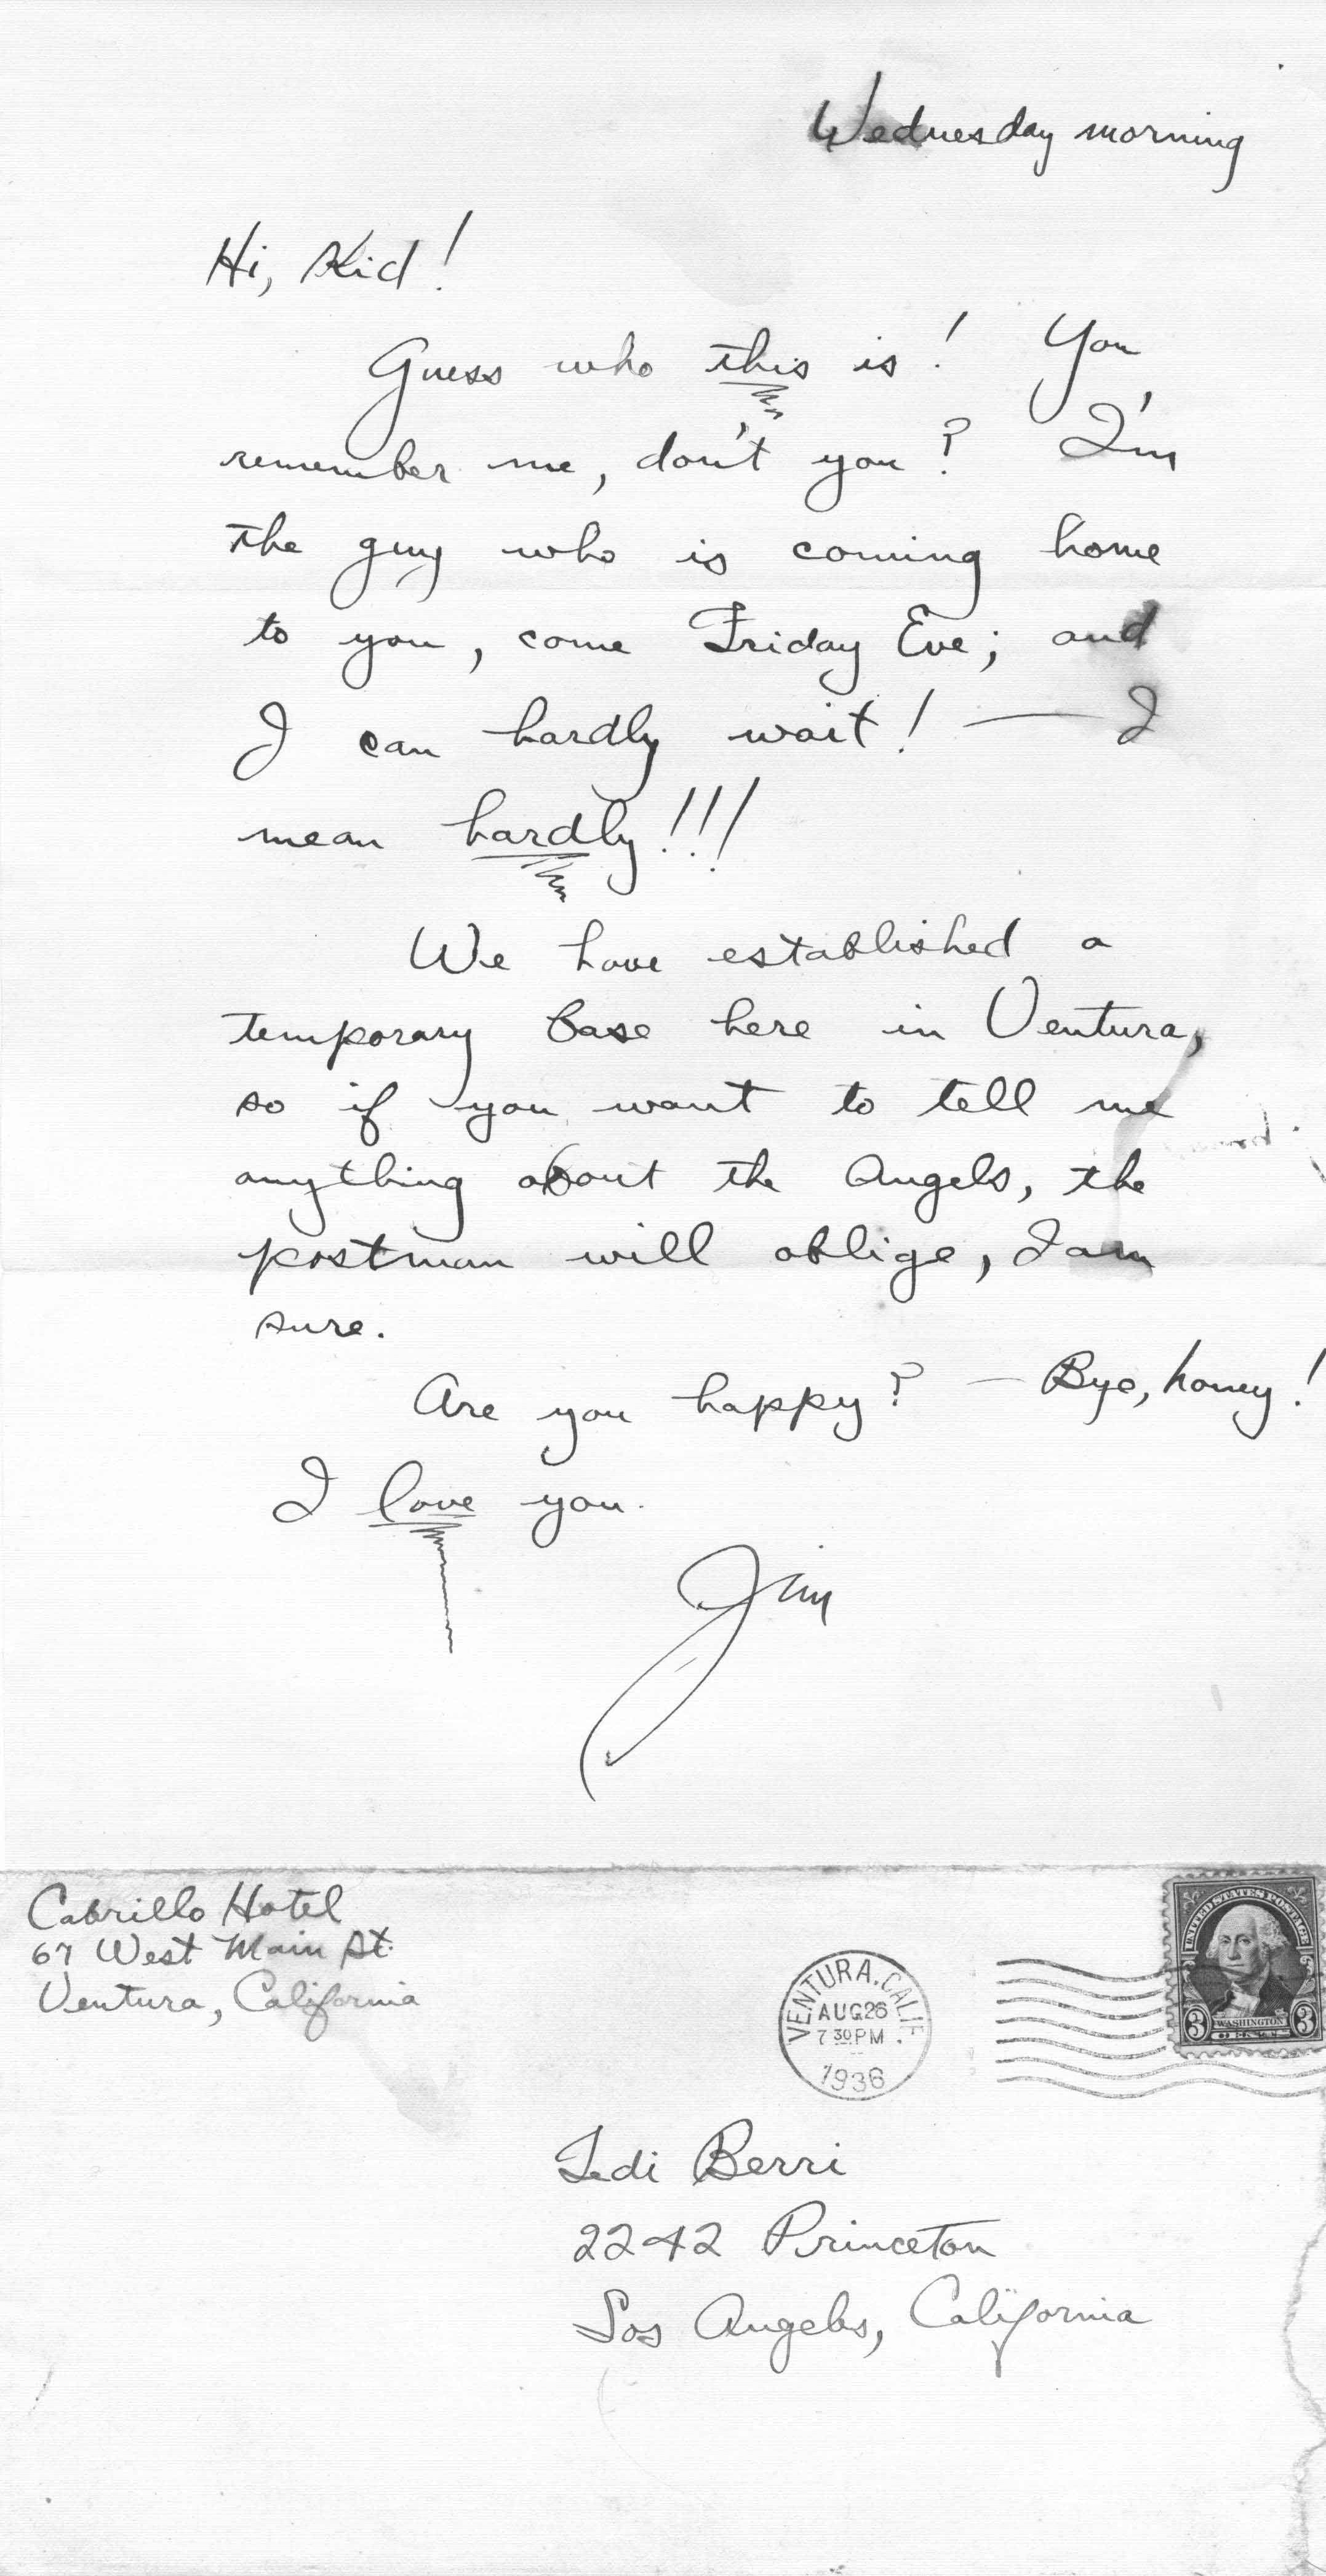 Wednesday morning
Hi, Kid!
Guess who this is! You
remember me, don't you? I'm
the guy who is coming home
to you, come Friday Eve; and
I can hardly wait! — I
mean hardly!!!
We have established a
temporary base here in Ventura,
so if you want to tell me
anything about the Angels, the
postman will oblige, I am
sure.
Are you happy? — Bye, honey!
I love you.
Jim
Cabrillo Hotel
67 West Main St.
Ventura, California
VENTURA, CALIF.
AUG 26
7 30 PM
1936
UNITED STATES POSTAGE
3 WASHINGTON 3
CENTS
Tedi Berri
2242 Princeton
Los Angeles, California